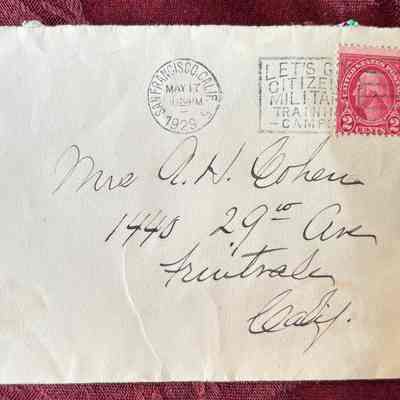 SAN FRANCISCO, CALIF.
MAY 17
PM
1929
LET'S G
CITIZE
MILITA
TRAININ
-CAMP
UNITED STATES POS
2 CENTS 2
Mrs A. H. Cohen
1440 29th Ave
Fruitvale
Calif.